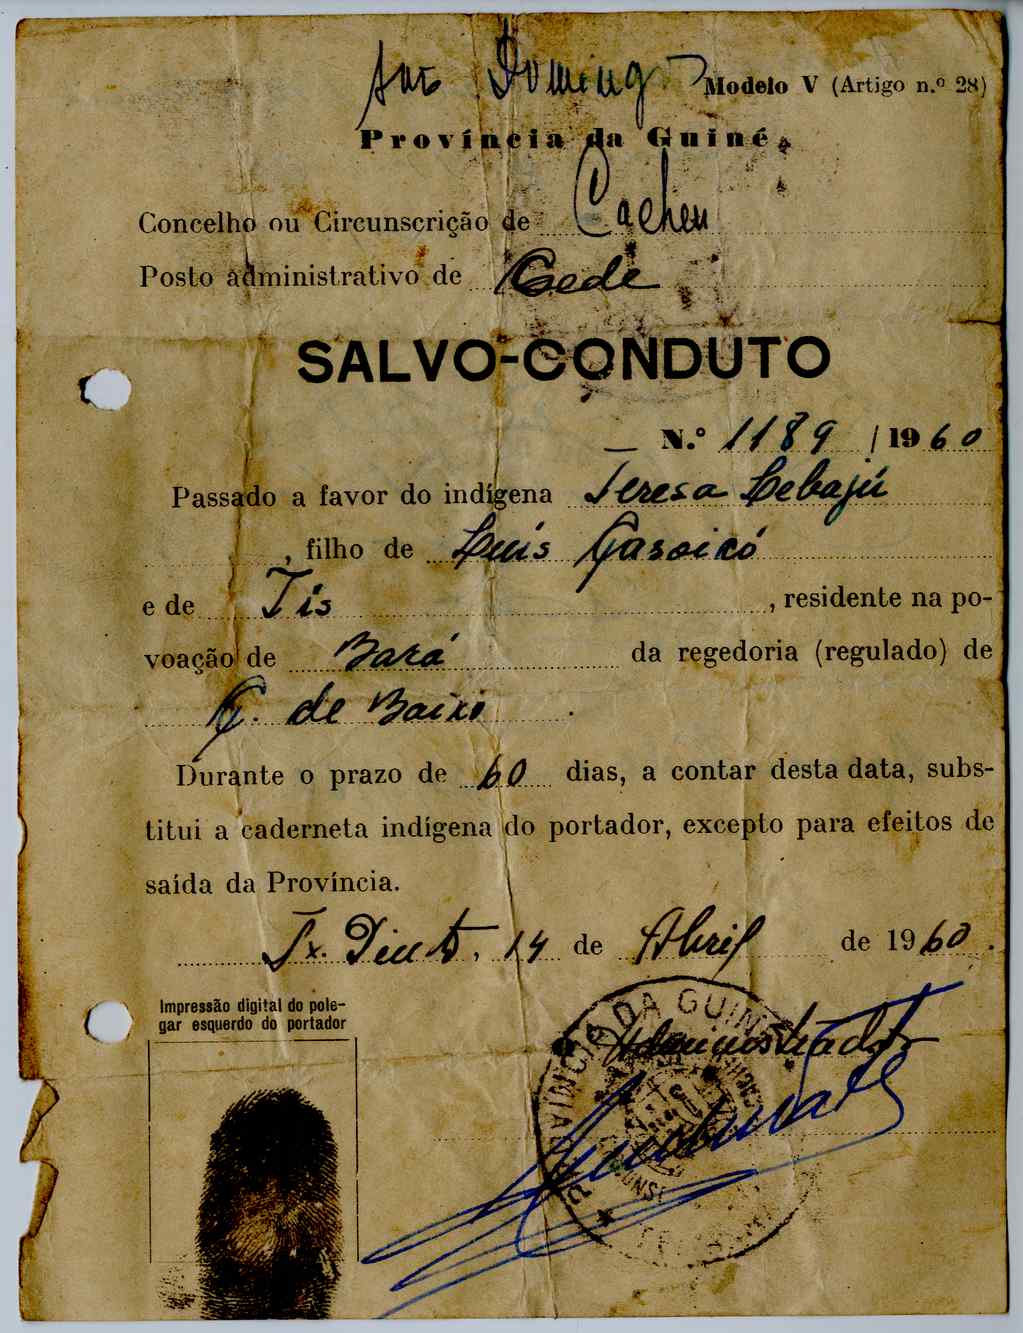 São Domingos
Modelo V (Artigo n.º 28)
Província da Guiné
Concelho ou Circunscrição de Cacheu
Posto administrativo de Sede
SALVO-CONDUTO
N.º 1189 / 1960
Passado a favor do indígena Teresa Lebajú
, filho de Luís Gasoicó
e de Tis , residente na po-
voação de Bará da regedoria (regulado) de
C. de Baixo .
Durante o prazo de 60 dias, a contar desta data, subs-
titui a caderneta indígena do portador, excepto para efeitos de
saída da Província.
Tx. Pinto, 14 de Abril de 1960.
Impressão digital do pole-
gar esquerdo do portador
PROVINCIA DA GUINÉ
O Administrador